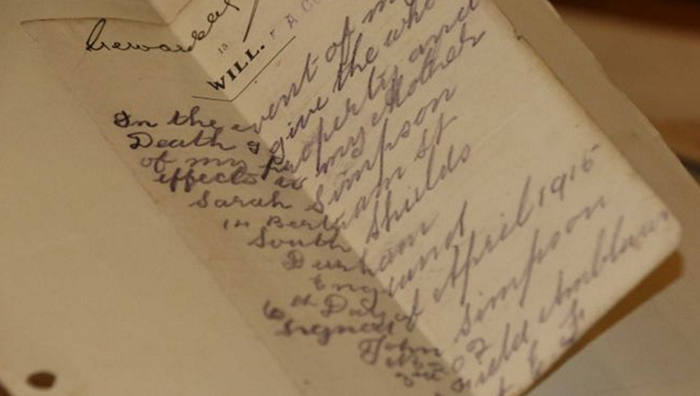 WILL.
In the event of my
Death I give the whole
of my property and
effects to my Mother
Sarah Simpson
14 Bertram St
South Shields
Durham
England
6th Day of April 1915
Signed Simpson
John
Field Amblance